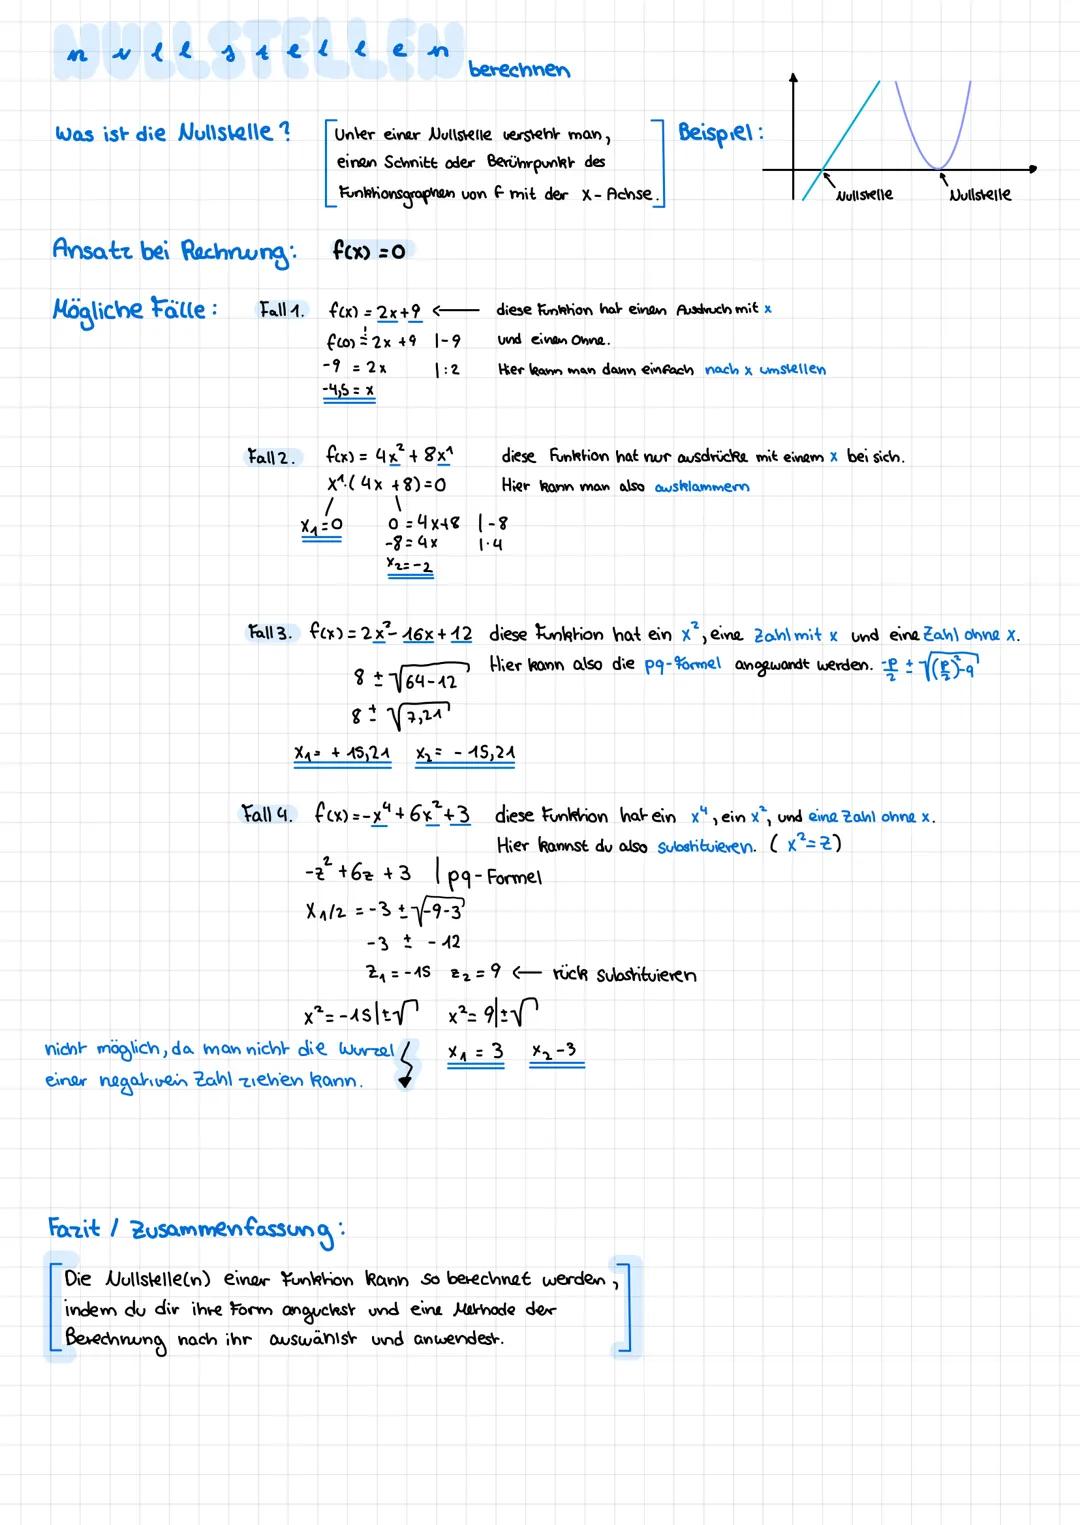 NULLSTELLEN
nullstellen berechnen
Was ist die Nullstelle?
Unter einer Nullstelle versteht man,
einen Schnitt oder Berührpunkt des
Funktionsgraphen von f mit der x-Achse.
Beispiel:
Nullstelle
Nullstelle
Ansatz bei Rechnung: f(x)=0
Mögliche Fälle:
Fall 1. f(x) = 2x+9 ← diese Funktion hat einen Ausdruck mit x
f(0) != 2x +9 |-9 und einen Ohne.
-9 = 2x |:2 Hier kann man dann einfach nach x umstellen
-4,5 = x
Fall 2. f(x) = 4x² + 8x¹ diese Funktion hat nur ausdrücke mit einem x bei sich.
x¹·(4x +8)=0 Hier kann man also ausklammern
x₁=0 0 = 4x+8 |-8
-8 = 4x |·4
x₂=-2
Fall 3. f(x) = 2x²- 16x + 12 diese Funktion hat ein x², eine Zahl mit x und eine Zahl ohne x.
Hier kann also die pq-Formel angewandt werden. -p/2 ± √((p/2)²-q)
8 ± √64-12
8 ± √7,21
x₁= + 15,21 x₂= - 15,21
Fall 4. f(x)=-x⁴+6x²+3 diese Funktion hat ein x⁴, ein x², und eine Zahl ohne x.
Hier kannst du also substituieren. (x²=z)
-z² +6z +3 | pq-Formel
x1/2 = -3 ± √-9-3
-3 ± -12
z₁ = -15 z₂ = 9 ← rück substituieren
x²=-15|±√ x²= 9|±√
nicht möglich, da man nicht die Wurzel
einer negativen Zahl ziehen kann.
x₁ = 3 x₂-3
Fazit / Zusammenfassung:
Die Nullstelle(n) einer Funktion kann so berechnet werden,
indem du dir ihre Form anguckst und eine Methode der
Berechnung nach ihr auswählst und anwendest.